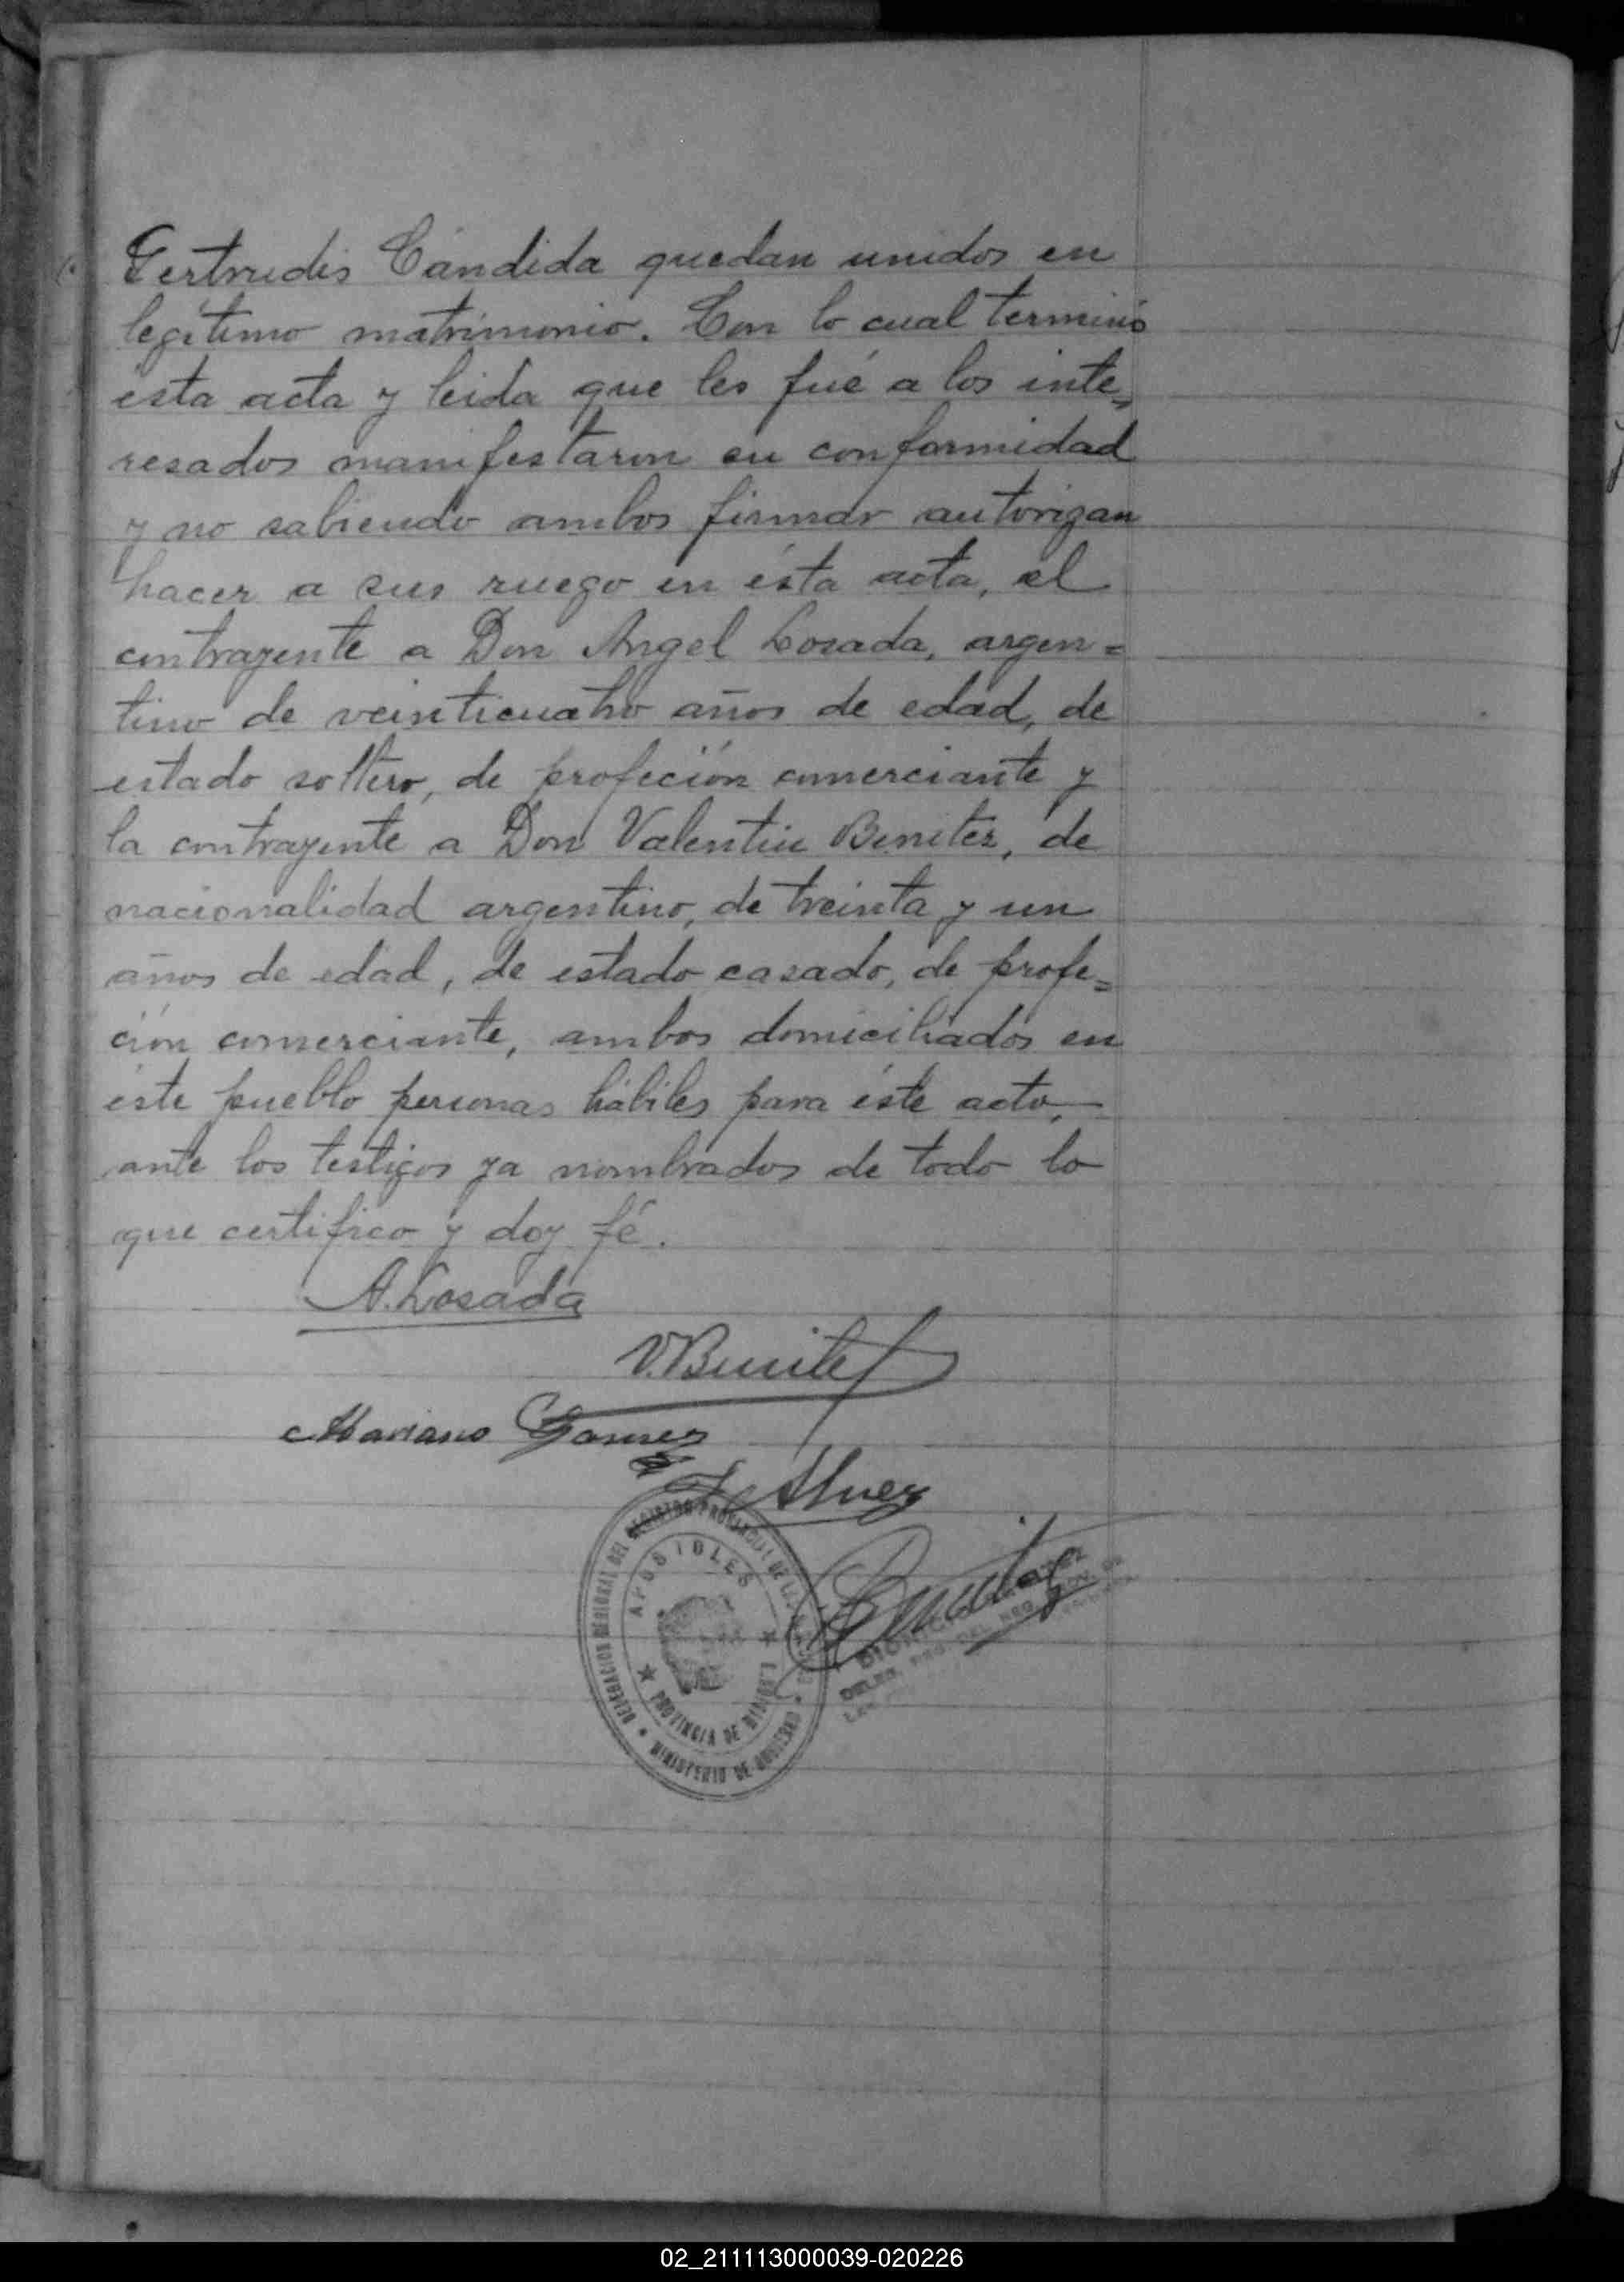 Gertrudis Cándida quedan unidos en
legítimo matrimonio. Con lo cual terminó
ésta acta y leida que les fué a los inte=
resados manifestaron su conformidad
y no sabiendo ambos firmar autorizan
hacer a sus ruego en ésta acta, el
contrayente a Don Angel Losada, argen=
tino de veinticuatro años de edad, de
estado soltero, de profeción comerciante y
la contrayente a Don Valentin Benitez, de
nacionalidad argentino, de treinta y un
años de edad, de estado casado, de profe=
ción comerciante, ambos domiciliados en
éste pueblo personas hábiles para éste acto,
ante los testigos ya nombrados de todo lo
que certifico y doy fé.
A. Losada
V. Benitez
Mariano Gomez
DELEGACION REGIONAL DEL REGISTRO PROVINCIAL DE LAS
APOSTOLES
PROVINCIA DE MISIONES
MINISTERIO DE GOBIERNO
Benitez
02_211113000039-020226